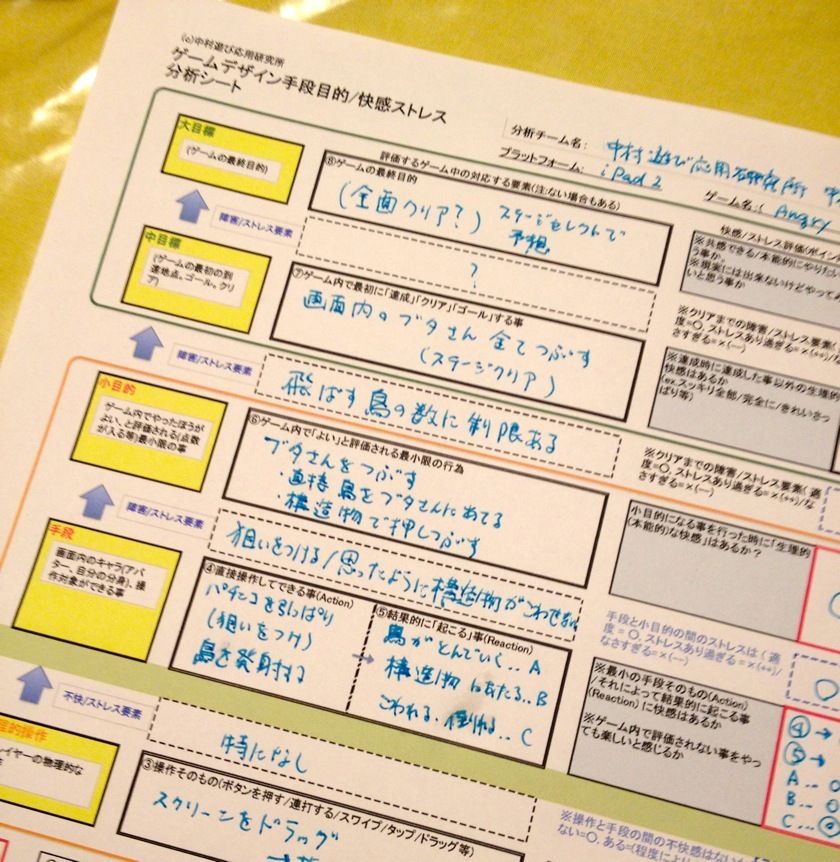 (c)中村遊び応用研究所
ゲームデザイン手段目的/快感ストレス
分析シート
分析チーム名:
中村遊び応用研究所
プラットフォーム:
iPad2
ゲーム名:(
Angry
大目標
(ゲームの最終目的)
評価するゲーム中の対応する要素(注:ない場合もある)
⑧ゲームの最終目的
(全面クリア?) ステージセレクトで
予想
障害/ストレス要素
?
快感/ストレス評価(ポイン
※共感できる/本能的にやりた
う事か。
※現実には出来ないけどやって
いと思う事か
中目標
(ゲームの最初の到
達地点。ゴール。クリ
ア)
⑦ゲーム内で最初に「達成」「クリア」「ゴール」する事
画面内のブタさん全てつぶす
(ステージクリア)
※クリアまでの障害/ストレス要素(
度=○、ストレスあり過ぎる=×(++)/な
さすぎる=×(—)
※達成時に達成した事以外の生理的
快感はあるか
(ex.スッキリ全部/完全に/きれいさっ
ぱり等)
障害/ストレス要素
飛ばす鳥の数に制限ある
小目的
ゲーム内でやったほうが
よい、と評価される(点数
が入る等)最小限の事
⑥ゲーム内で「よい」と評価される最小限の行為
ブタさんをつぶす
・直接鳥をブタさんにあてる
・構造物で押しつぶす
※クリアまでの障害/ストレス要素(適
度=○、ストレスあり過ぎる=×(++)/な
さすぎる=×(—)
小目的になる事を行った時に「生理的
(本能的)な快感」はあるか?
障害/ストレス要素
狙いをつける/思ったように構造物がこわせない
手段
画面内のキャラ(アバ
ター、自分の分身)、操
作対象ができる事
④直接操作してできる事(Action)
パチンコを引っぱり
(狙いをつけ)
鳥を発射する
⑤結果的に「起こる」事(Reaction)
鳥がとんでいく‥A
構造物にあたる‥B
こわれる、倒れる‥C
手段と小目的の間のストレスは(適
度=○、ストレスあり過ぎる=×(++)/
なさすぎる=×(—)
※最小の手段そのもの(Action)
/それによって結果的に起こる事
(Reaction)に快感はあるか
※ゲーム内で評価されない事をやっ
ても楽しいと感じるか
④→
⑤→
A…
B…
C…
不快/ストレス要素
特になし
理的操作
レイヤーの物理的な
③操作そのもの(ボタンを押す/連打する/スワイプ/タップ/ドラッグ等)
スクリーンをドラッグ
※操作と手段の間の不快感はな
ない=○、ある=(程度によ